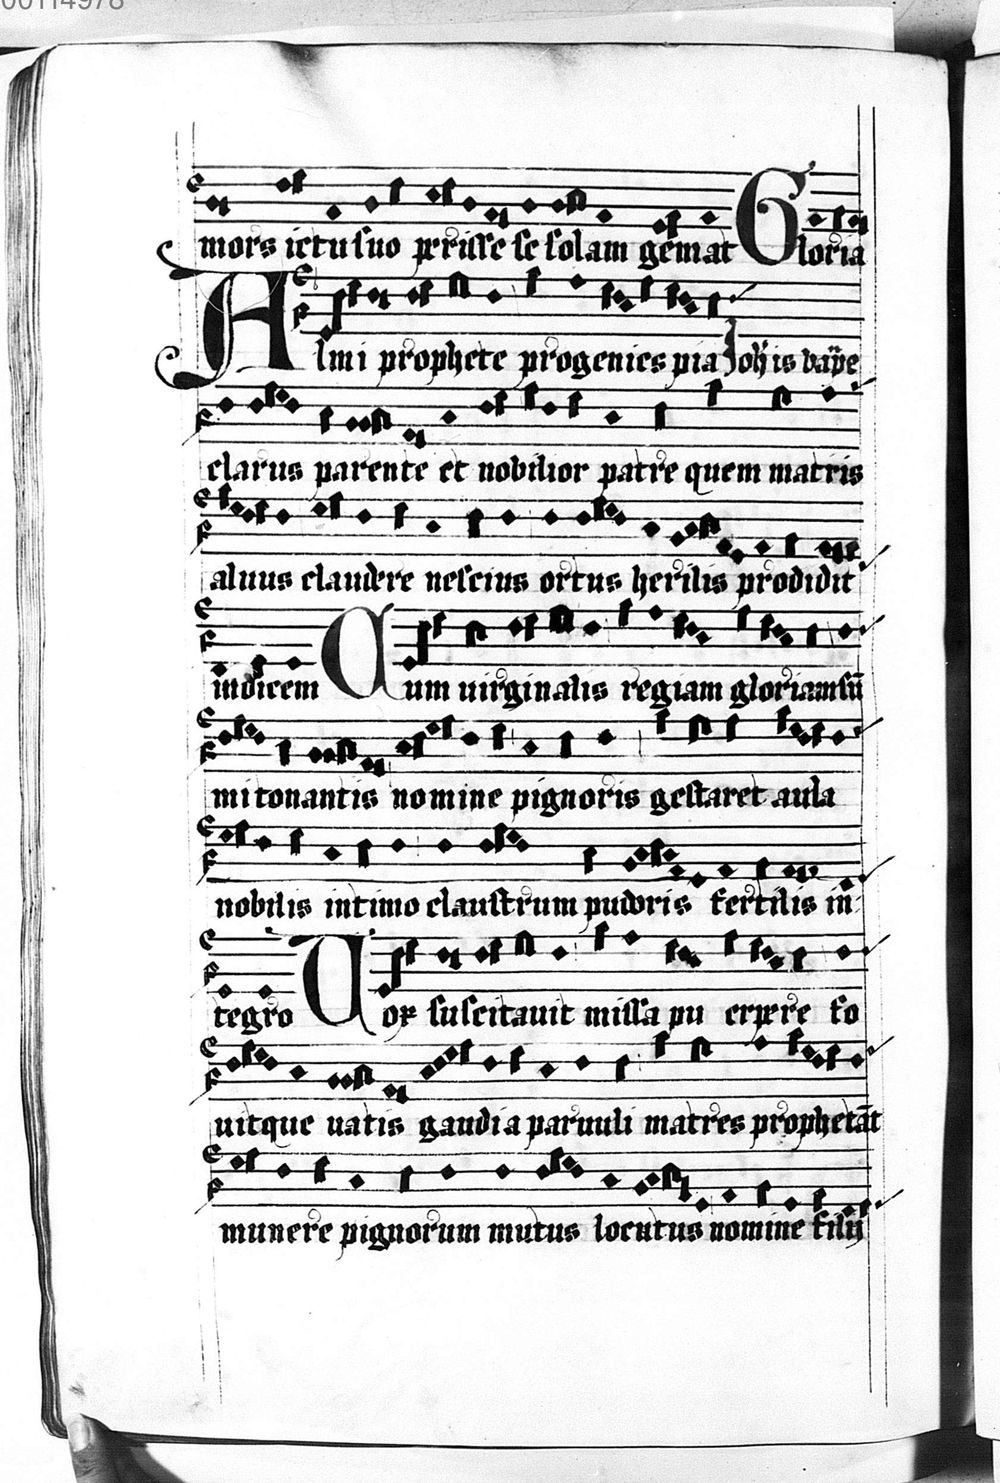 00114978
mors ictu suo perisse se solam gemat Gloria
Almi prophete progenies pia Joh̄is bap̄te
clarus parente et nobilior patre quem matris
aluus claudere nescius ortus herilis prodidit
indicem Cum uirginalis regiam gloriam sū
mi tonantis nomine pignoris gestaret aula
nobilis intimo claustrum pudoris fertilis in
tegro Vox suscitauit missa pu erpere fo
uitque uatis gaudia paruuli matres prophetāt
munere pignorum mutus locutus nomine filij